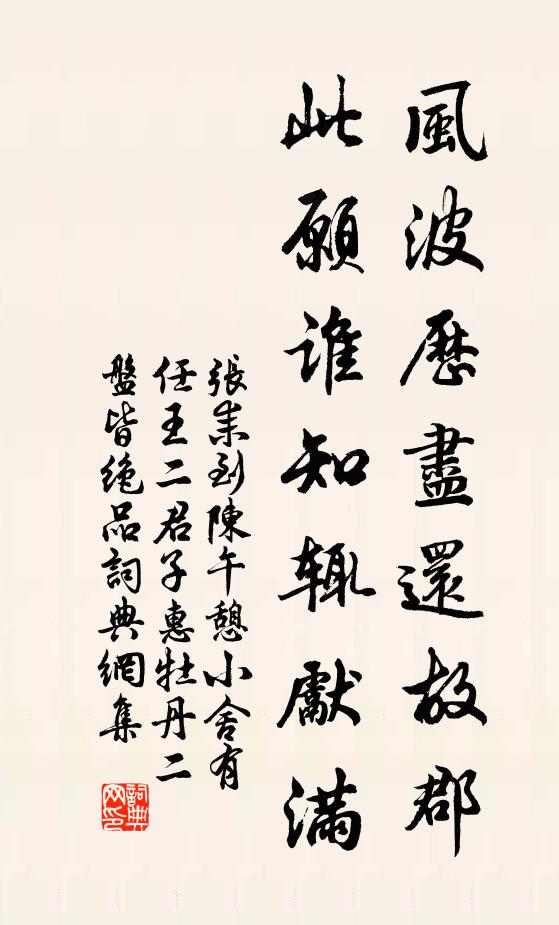 風波歷盡還故郡
此願誰知輒獻滿
張耒到陳午憩小舍有
任王二君子惠牡丹二
盤皆絕品詞典網集
詞典网印